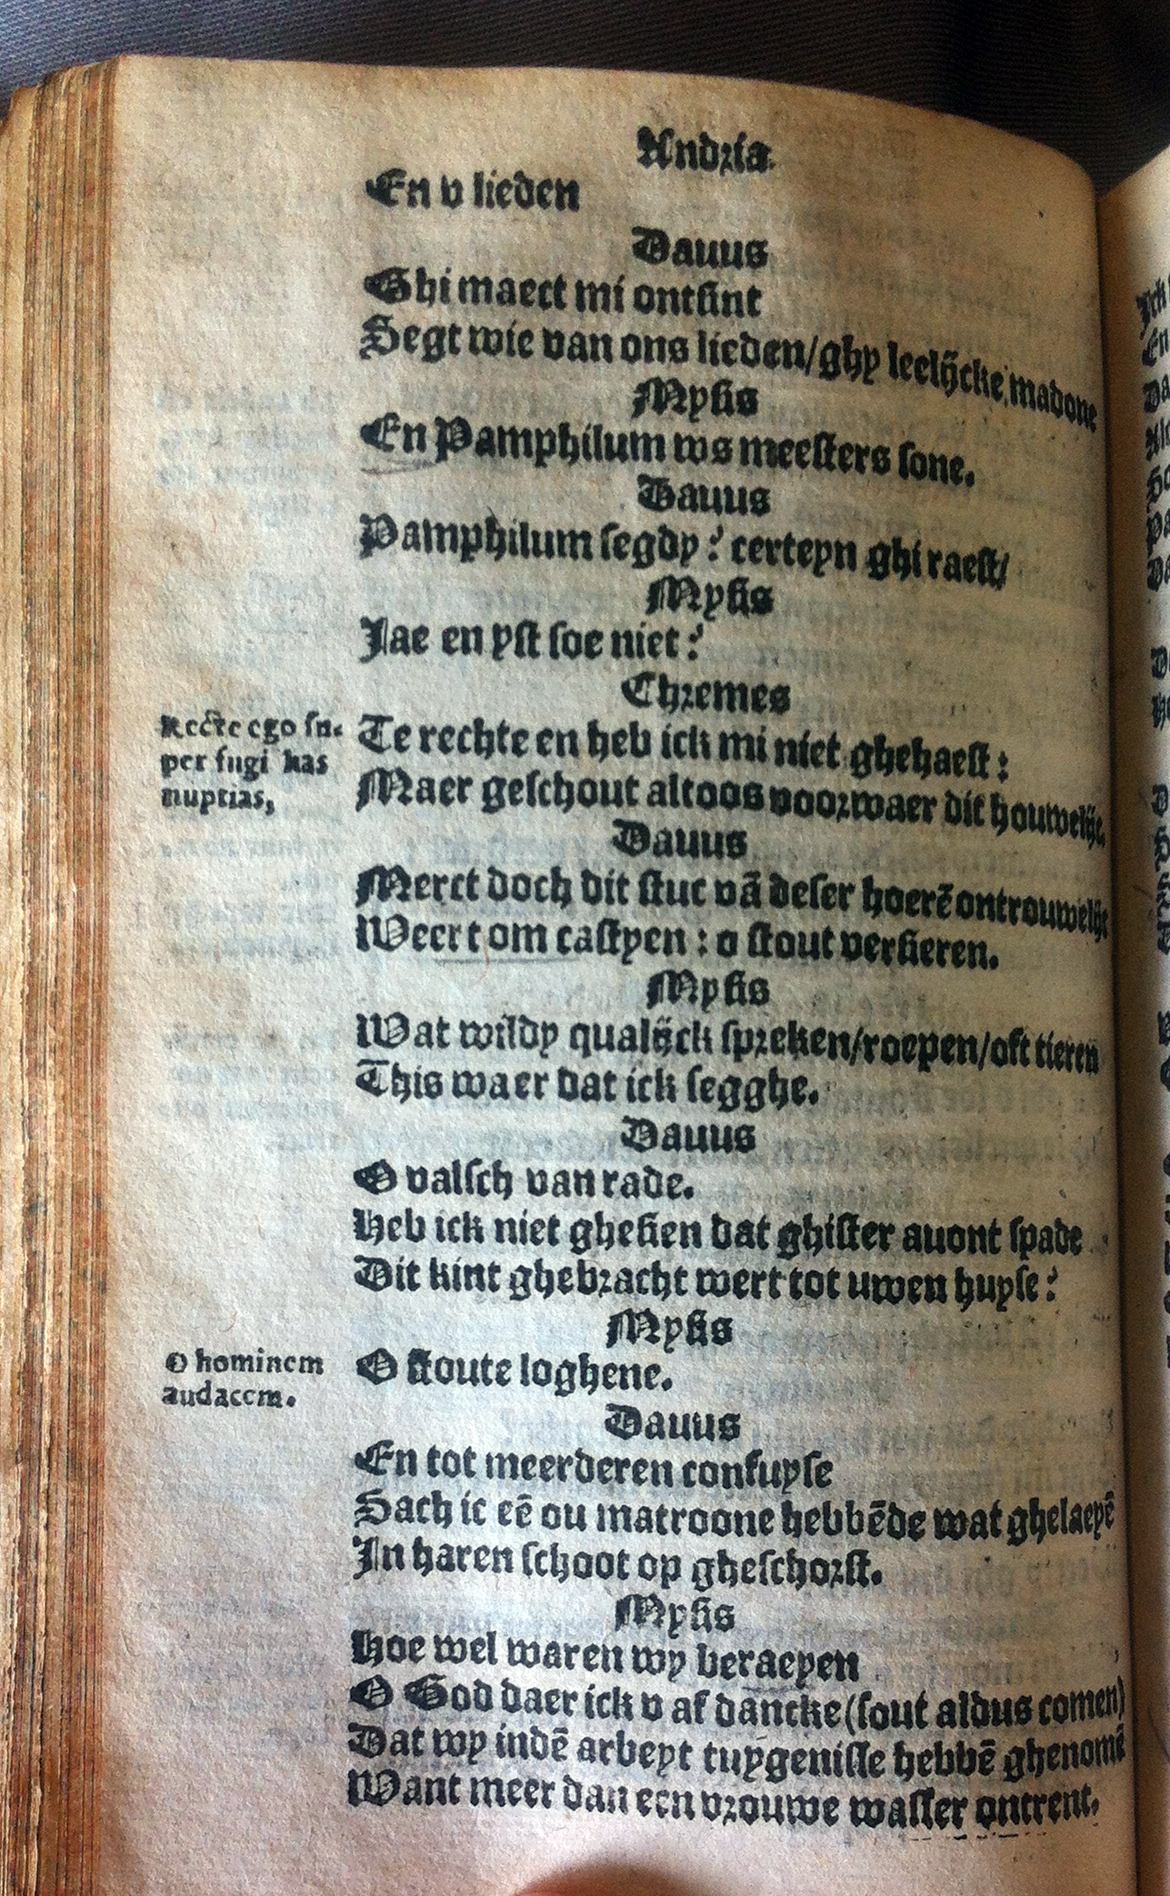 Andria.
En v lieden
Dauus
Ghi maect mi ontsint
Segt wie van ons lieden/ghy leelijcke madone
Mysis
En Pamphilum ws meesters sone.
Dauus
Pamphilum segdy? certeyn ghi raest/
Mysis
Jae en yst soe niet?
Chremes
Recte ego sem-
per fugi has
nuptias,
Te rechte en heb ick mi niet ghehaest:
Maer geschout altoos voorwaer dit houwelijc.
Dauus
Merct doch dit stuc vā deser hoerē ontrouwelijc
Weert om castyen: o stout versieren.
Mysis
Wat wildy qualijck spreken/roepen/oft tieren
This waer dat ick segghe.
Dauus
O valsch van rade.
Heb ick niet ghesien dat ghister auont spade
Dit kint ghebracht wert tot uwen huyse?
Mysis
O hominem
audacem.
O stoute loghene.
Dauus
En tot meerderen confuyse
Sach ic eē ou matroone hebbēde wat ghelaeyē
In haren schoot op gheschorst.
Mysis
Hoe wel waren wy beraeyen
O God daer ick v af dancke (sout aldus comen)
Dat wy indē arbeyt tuygenisse hebbē ghenomē
Want meer dan een vrouwe wasser ontrent.